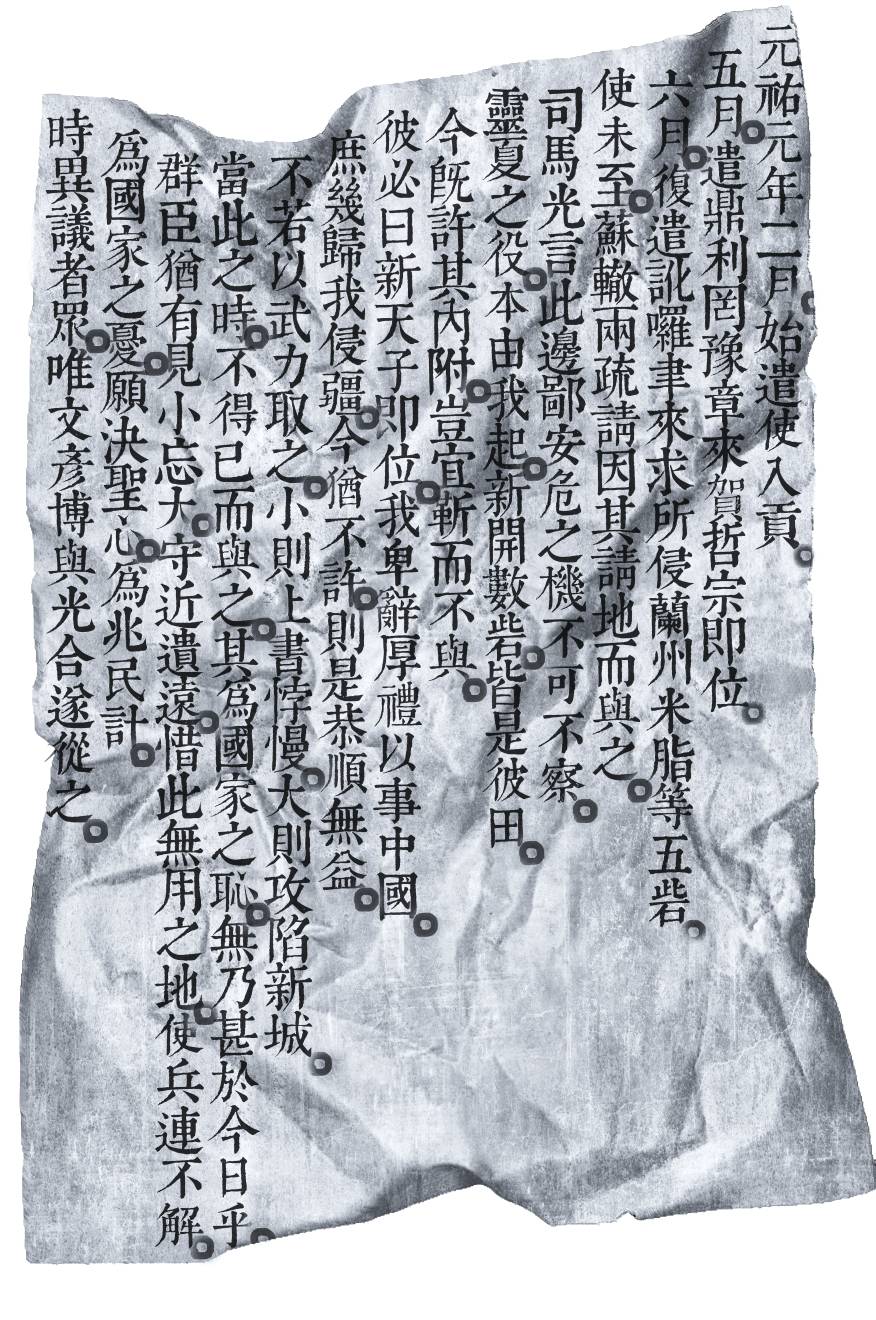 元祐元年二月。始遣使入貢。
五月。遣鼎利罔豫章來賀哲宗即位。
六月。復遣訛囉聿來求所侵蘭州米脂等五砦。
使未至。蘇轍兩疏請因其請地而與之。
司馬光言此邊鄙安危之機不可不察。
靈夏之役。本由我起。新開數砦。皆是彼田。
今既許其內附。豈宜靳而不與。
彼必曰新天子即位。我卑辭厚禮以事中國。
庶幾歸我侵疆。今猶不許。則是恭順無益。
不若以武力取之。小則上書悖慢。大則攻陷新城。
當此之時。不得已而與之。其為國家之恥。無乃甚於今日乎。
群臣猶有見小忘大。守近遺遠。惜此無用之地。使兵連不解。
為國家之憂。願決聖心。為兆民計。
時異議者眾。唯文彥博與光合遂從之。